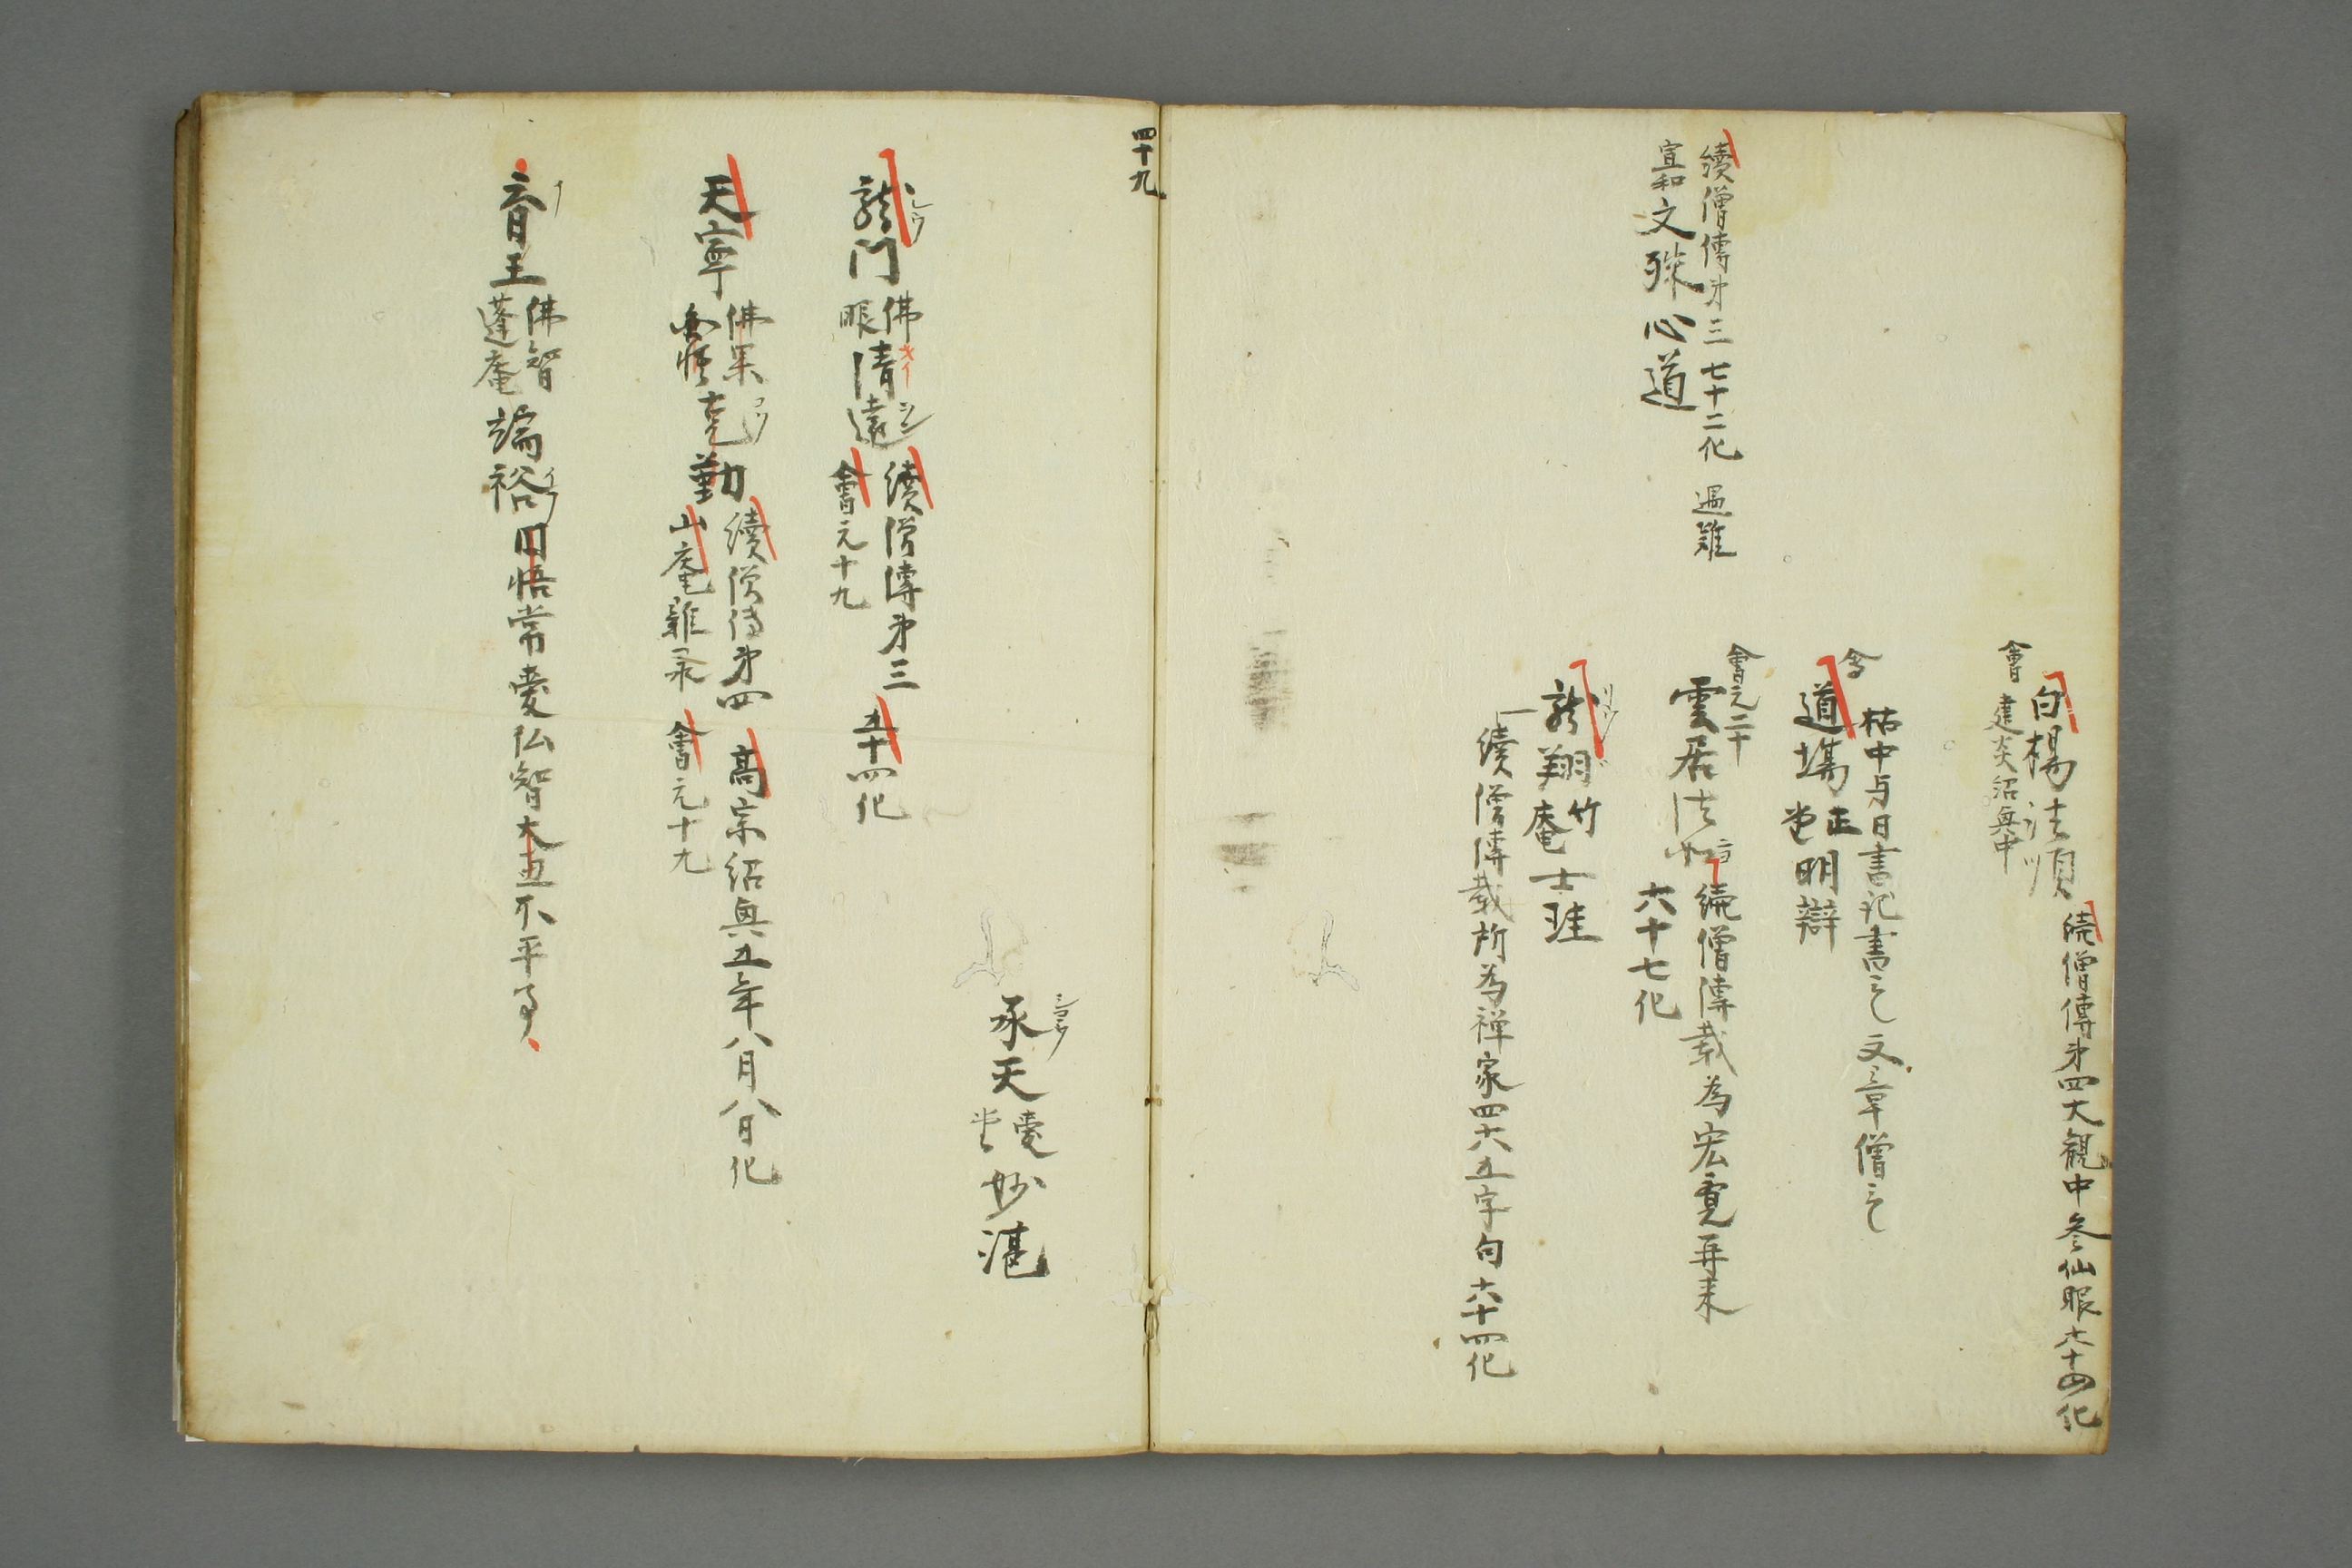 續僧傳第四大観中参仙眼六十四化
白楊法順
會建炎紹興中
枯中与日書記書之文章僧之
會
道場正堂明辯
會元二十
續僧傳載為宏覚再来
雲居法如
六十七化
龍翔竹庵士珪
續僧傳載所為禅家四六五字句六十四化
續僧傳第三七十二化遇難
宣和文殊心道
四十九
承天慶堂妙湛
龍門佛眼清遠
續僧傳第三五十四化
會元十九
天寧佛果圜悟克勤
續僧傳第四高宗紹興五年八月八日化
山庵雜录會元十九
育王佛智蓬庵端裕圓悟常愛仏智大丑不平了